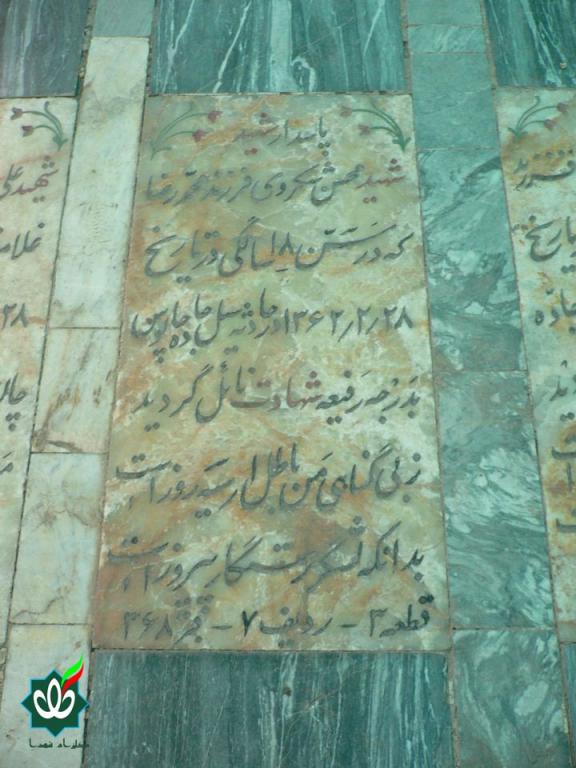 پاسدار شهید
شهید محسن شکروی فرزند محمدرضا
که در سن ۱۸ سالگی در تاریخ
۱۳۶۲/۲/۲۸ در حادثه سیل جاده چالوس
بدرجه رفیعه شهادت نائل گردید
ز بی گناهی من باطل ار سیه روز است
بدانکه لشکر ستمگار پیروز است
قطعه ۳ - ردیف ۷ - قبر ۳۶۸
شهید علی
غلامر
۲۸
چالو
فرزند
تاریخ
جاده
گلزار شهدا